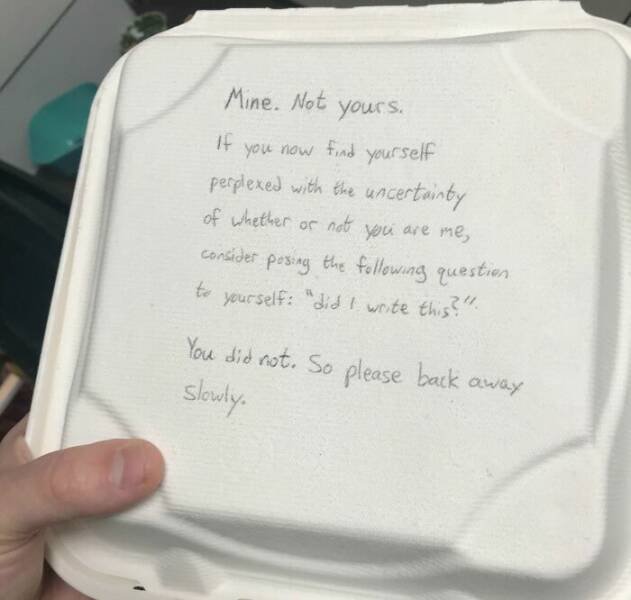 Mine. Not yours.
If you now find yourself
perplexed with the uncertainty
of whether or not you are me,
consider posing the following question
to yourself: "did I write this?".
You did not. So please back away
slowly.